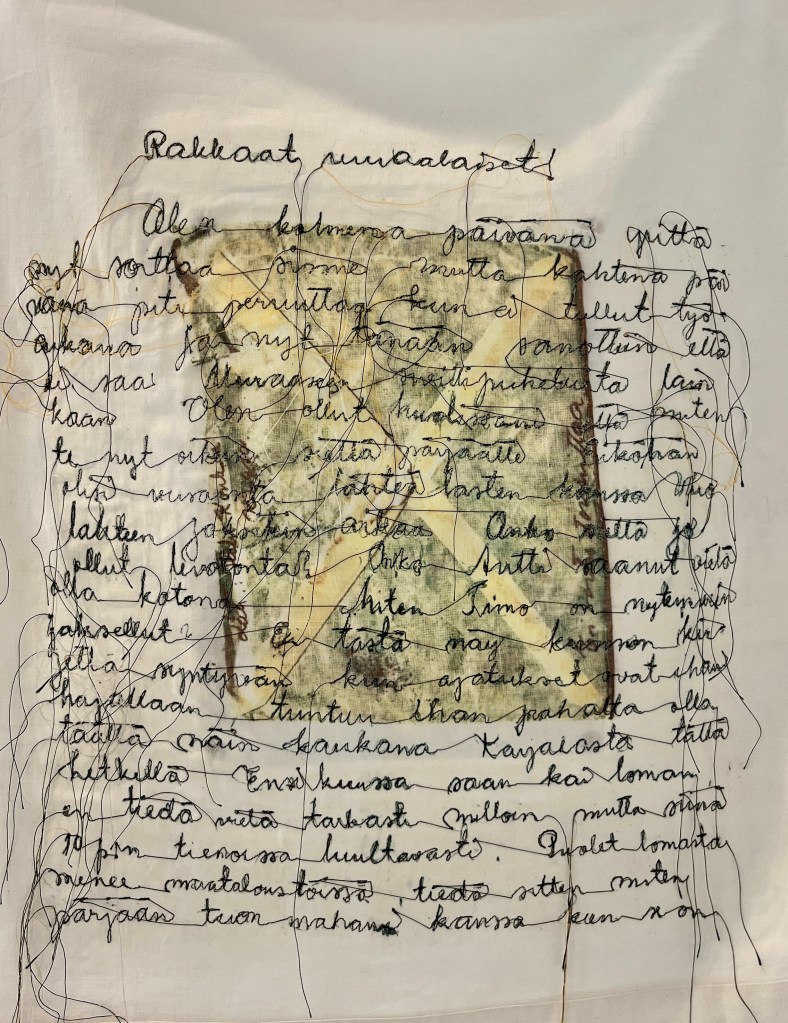 Rakkaat muraalaiset!
Olen kolmena päivänä yrittä
nyt soittaa sinne mutta kahtena päi
vänä piti peruuttaa kun ei tullut työ
aikana ja nyt tänään sanottiin että
ei saa Muraaseen puhelua lain
kaan Olen ollut huolissani siitä miten
te nyt oikein siellä pärjäälle Eiköhän
olisi viisainta lähteä lasten kanssa
lahteen jokatein aikaa Onko siellä jo
ollut levotonta? Onko Antti saanut vielä
olla kotona Miten Timo on nytemmin
jaksellut? Ei tästä näy kunnon kir
jettä syntyvän kun ajatukset ovat ihan
hajallaan, tuntuu ihan pahalta olla
täällä näin kaukana Karjalasta tällä
hetkellä Ensi kuussa saan kai loman,
en tiedä vielä tarkasti milloin mutta siinä
10 p:n tienoissa luultavasti. Puolet lomasta
menee maataloustöissä, tiedä sitten miten
pärjään tuon mahani kanssa kun on